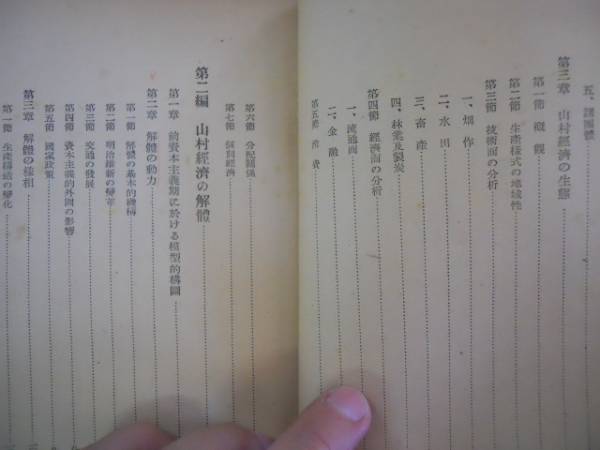 五、諸團體
第三章 山村經濟の生態
第一節 概觀
第二節 生產樣式の地域性
第三節 技術面の分析
一、畑作
二、水田
三、畜產
四、林業及製炭
第四節 經濟面の分析
一、流通面
二、金融
第五節 消費
第六節 分配關係
第七節 個別經濟
第二編 山村經濟の解體
第一章 前資本主義期に於ける模型的構圖
第二章 解體の動力
第一節 解體の基本的機構
第二節 明治維新の變革
第三節 交通の發展
第四節 資本主義的外圍の影響
第五節 國家政策
第三章 解體の樣相
第一節 生產構造の變化